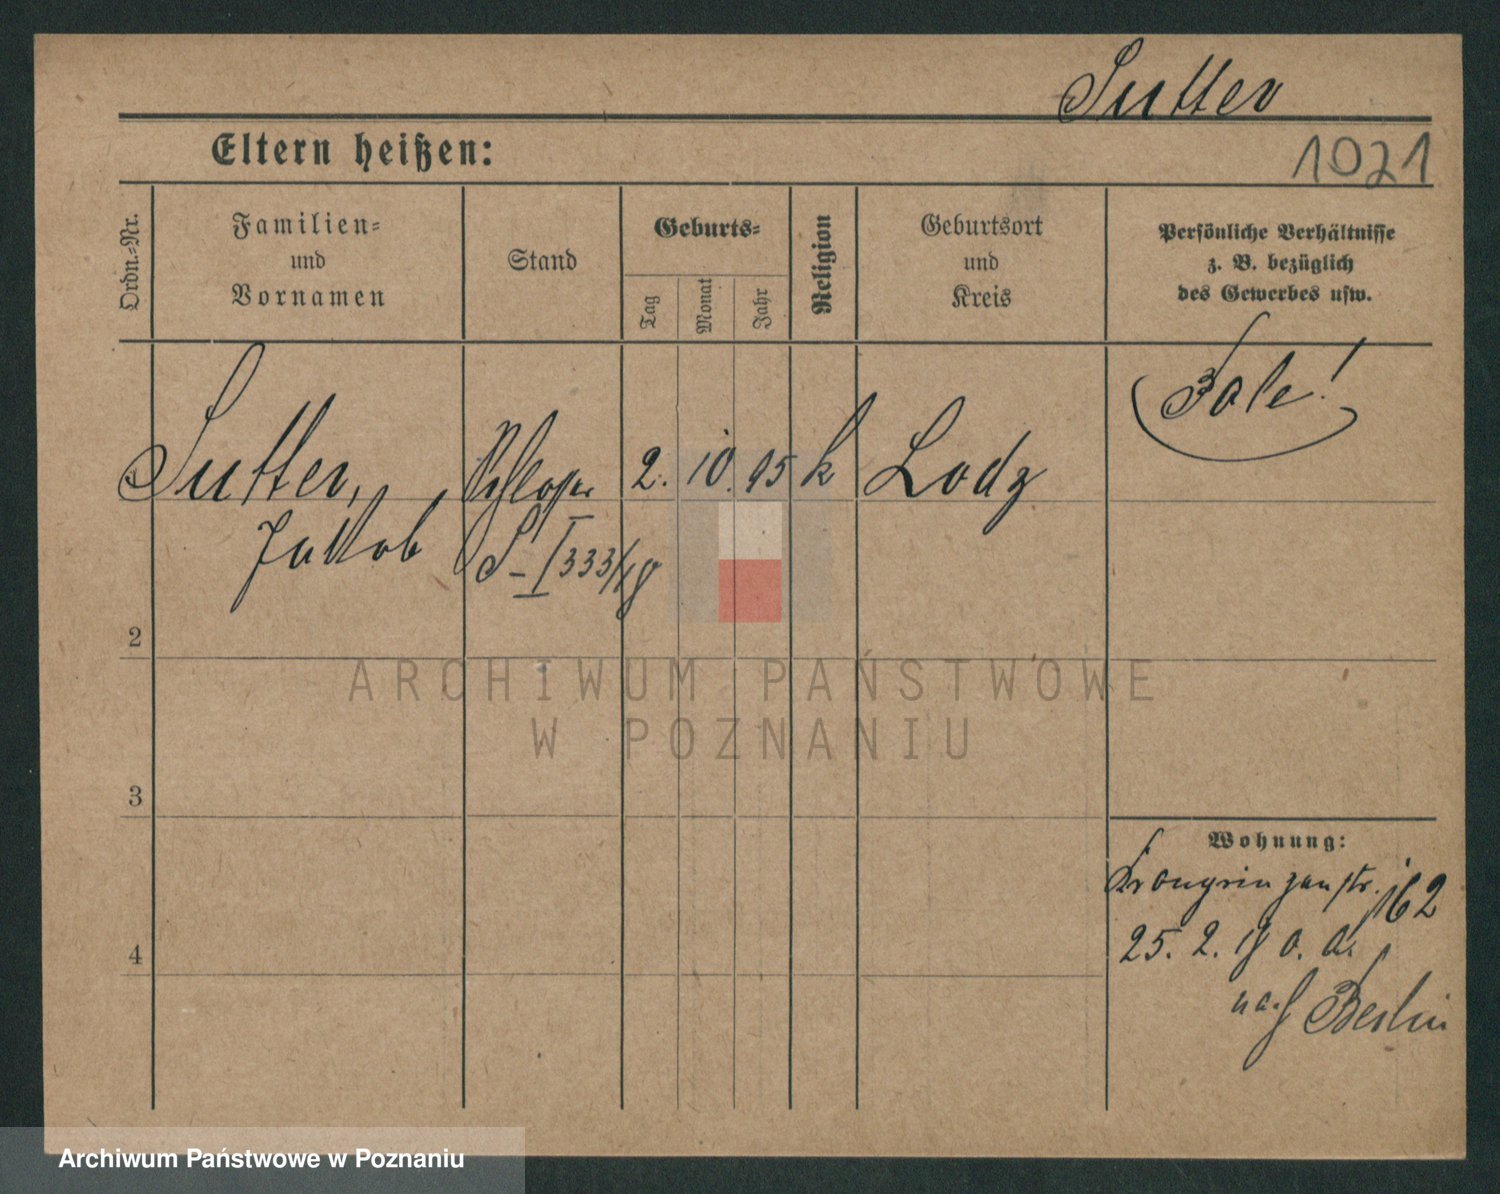 Sutter
1021
Eltern heißen:
Ordn.-Nr.
Familien-
und
Vornamen
Stand
Geburts-
Tag
Monat
Jahr
Religion
Geburtsort
und
Kreis
Persönliche Verhältnisse
z. B. bezüglich
des Gewerbes usw.
Pole!
1 Sutter, Schlosser 2. 10. 95 k Lodz
Jakob S-I 333/18
2
ARCHIWUM PAŃSTWOWE
W POZNANIU
3
Wohnung:
Kronprinzenstr. 62
25. 2. 18
4
nach Berlin
Archiwum Państwowe w Poznaniu